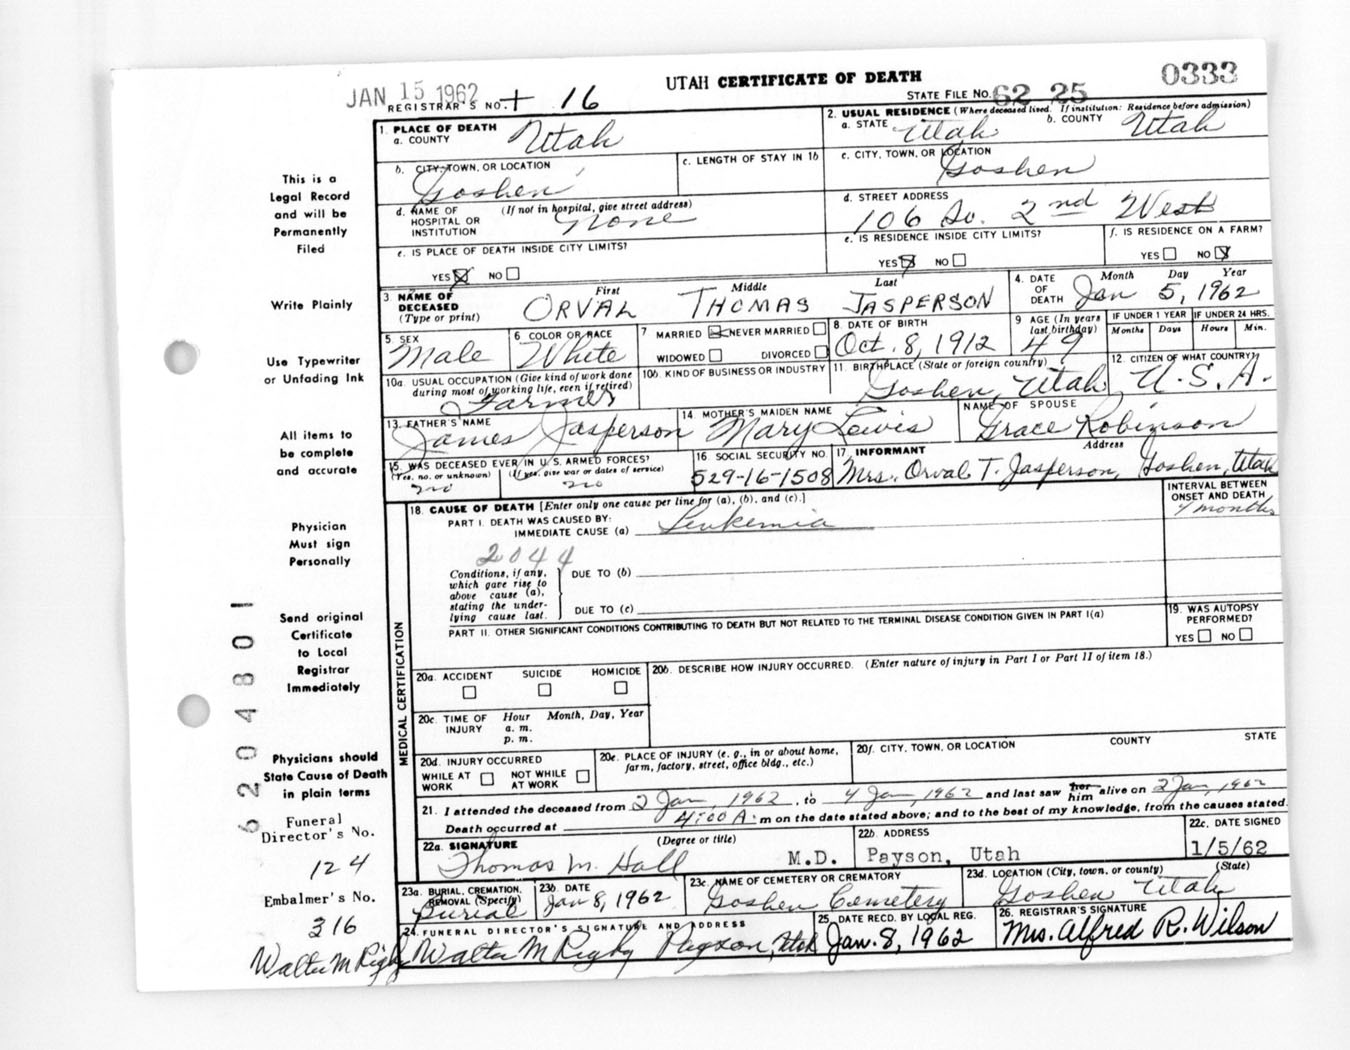 JAN 15 1962
UTAH CERTIFICATE OF DEATH
0333
REGISTRAR'S NO. + 16
STATE FILE NO. 62 25
1. PLACE OF DEATH
a. COUNTY Utah
2. USUAL RESIDENCE (Where deceased lived. If institution: Residence before admission)
a. STATE Utah b. COUNTY Utah
b. CITY, TOWN, OR LOCATION Goshen
c. LENGTH OF STAY IN 1b
c. CITY, TOWN, OR LOCATION Goshen
d. NAME OF HOSPITAL OR INSTITUTION (If not in hospital, give street address) None
d. STREET ADDRESS 106 So. 2nd West
e. IS PLACE OF DEATH INSIDE CITY LIMITS?
YES NO
e. IS RESIDENCE INSIDE CITY LIMITS?
YES NO
f. IS RESIDENCE ON A FARM?
YES NO
3. NAME OF DECEASED (Type or print)
First Middle Last
ORVAL THOMAS JASPERSON
4. DATE OF DEATH Month Day Year
Jan 5, 1962
5. SEX Male
6 COLOR OR RACE White
7 MARRIED NEVER MARRIED
WIDOWED DIVORCED
8. DATE OF BIRTH Oct. 8, 1912
9 AGE (In years last birthday) 49
IF UNDER 1 YEAR Months Days
IF UNDER 24 HRS. Hours Min.
10a. USUAL OCCUPATION (Give kind of work done during most of working life, even if retired)
Farmer
10b. KIND OF BUSINESS OR INDUSTRY
11. BIRTHPLACE (State or foreign country) Goshen, Utah
12. CITIZEN OF WHAT COUNTRY? U.S.A.
13. FATHER'S NAME James Jasperson
14. MOTHER'S MAIDEN NAME Mary Lewis
NAME OF SPOUSE Grace Robinson
15. WAS DECEASED EVER IN U. S. ARMED FORCES?
(Yes, no, or unknown) no
(If yes, give war or dates of service) no
16. SOCIAL SECURITY NO. 529-16-1508
17. INFORMANT Address
Mrs. Orval T. Jasperson, Goshen, Utah
18. CAUSE OF DEATH [Enter only one cause per line for (a), (b), and (c).]
INTERVAL BETWEEN ONSET AND DEATH
PART I. DEATH WAS CAUSED BY:
IMMEDIATE CAUSE (a) Leukemia
months
2044
Conditions, if any, which gave rise to above cause (a), stating the underlying cause last.
DUE TO (b)
DUE TO (c)
PART II. OTHER SIGNIFICANT CONDITIONS CONTRIBUTING TO DEATH BUT NOT RELATED TO THE TERMINAL DISEASE CONDITION GIVEN IN PART I(a)
19. WAS AUTOPSY PERFORMED?
YES NO
20a. ACCIDENT SUICIDE HOMICIDE
20b. DESCRIBE HOW INJURY OCCURRED. (Enter nature of injury in Part I or Part II of item 18.)
20c. TIME OF INJURY Hour Month, Day, Year
a. m.
p. m.
20d. INJURY OCCURRED
WHILE AT WORK NOT WHILE AT WORK
20e. PLACE OF INJURY (e. g., in or about home, farm, factory, street, office bldg., etc.)
20f. CITY, TOWN, OR LOCATION COUNTY STATE
MEDICAL CERTIFICATION
21. I attended the deceased from 2 Jan, 1962, to 4 Jan, 1962 and last saw her him alive on 2 Jan, 1962
Death occurred at 4:00 A. m on the date stated above; and to the best of my knowledge, from the causes stated.
22a. SIGNATURE (Degree or title)
Thomas M. Hall M.D.
22b. ADDRESS
Payson, Utah
22c. DATE SIGNED
1/5/62
23a. BURIAL, CREMATION, REMOVAL (Specify)
Burial
23b. DATE
Jan 8, 1962
23c. NAME OF CEMETERY OR CREMATORY
Goshen Cemetery
23d. LOCATION (City, town, or county) (State)
Goshen Utah
24. FUNERAL DIRECTOR'S SIGNATURE AND ADDRESS
Walter M Rigby Payson, Utah
25. DATE RECD. BY LOCAL REG.
Jan. 8, 1962
26. REGISTRAR'S SIGNATURE
Mrs. Alfred R. Wilson
This is a
Legal Record
and will be
Permanently
Filed
Write Plainly
Use Typewriter
or Unfading Ink
All items to
be complete
and accurate
Physician
Must sign
Personally
Send original
Certificate
to Local
Registrar
Immediately
Physicians should
State Cause of Death
in plain terms
Funeral
Director's No.
124
Embalmer's No.
316
Walter M Rigby
6204801